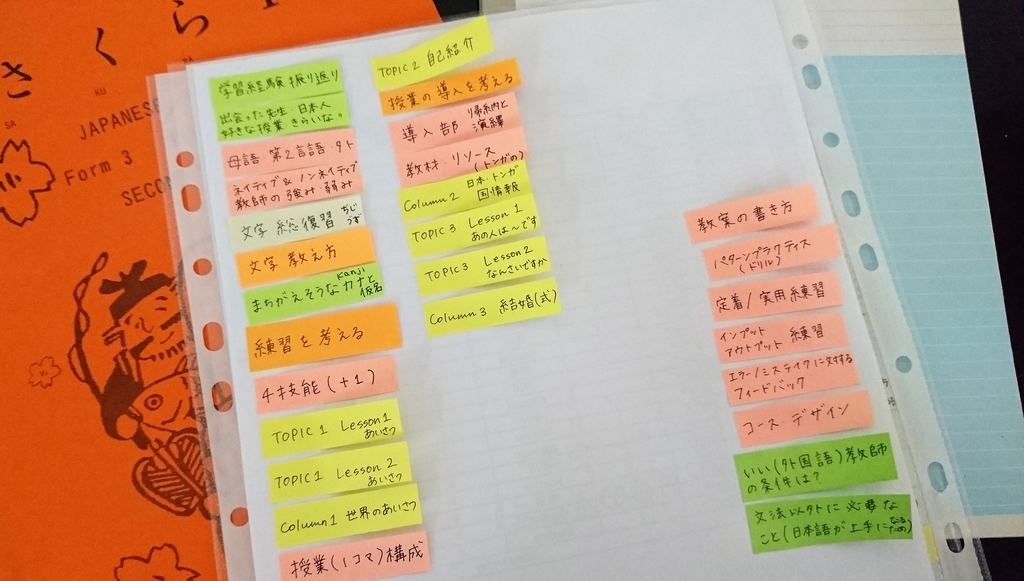 さくら
SA
KU
RA
JAPANESE
Form 3
SECO
学習経験振り返り
出会った先生・日本人
好きな授業・きらいな〃
母語・第2言語・外
ネイティブ&ノンネイティブ
教師の強み・弱み
文字 総復習 ちじ
うず
文字 教え方
まちがえそうな カナと
Kanji
仮名
練習を考える
4技能(+1)
TOPIC 1 Lesson 1
あいさつ
TOPIC 1 Lesson 2
あいさつ
Column 1 世界のあいさつ
授業(1コマ)構成
TOPIC 2 自己紹介
授業の導入を考える
導入部 帰納と
演繹
教材・リソース
(トンガの)
Column 2 日本・トンガ
国情報
TOPIC 3 Lesson 1
あの人は〜です
TOPIC 3 Lesson 2
なんさいですか
Column 3 結婚(式)
教案の書き方
パターンプラクティス
(ドリル)
定着/実用練習
インプット
アウトプット 練習
エラー/ミステイクに対する
フィードバック
コースデザイン
いい(外国語)教師
の条件は?
文法以外に必要な
こと(日本語が上手になる
ため)